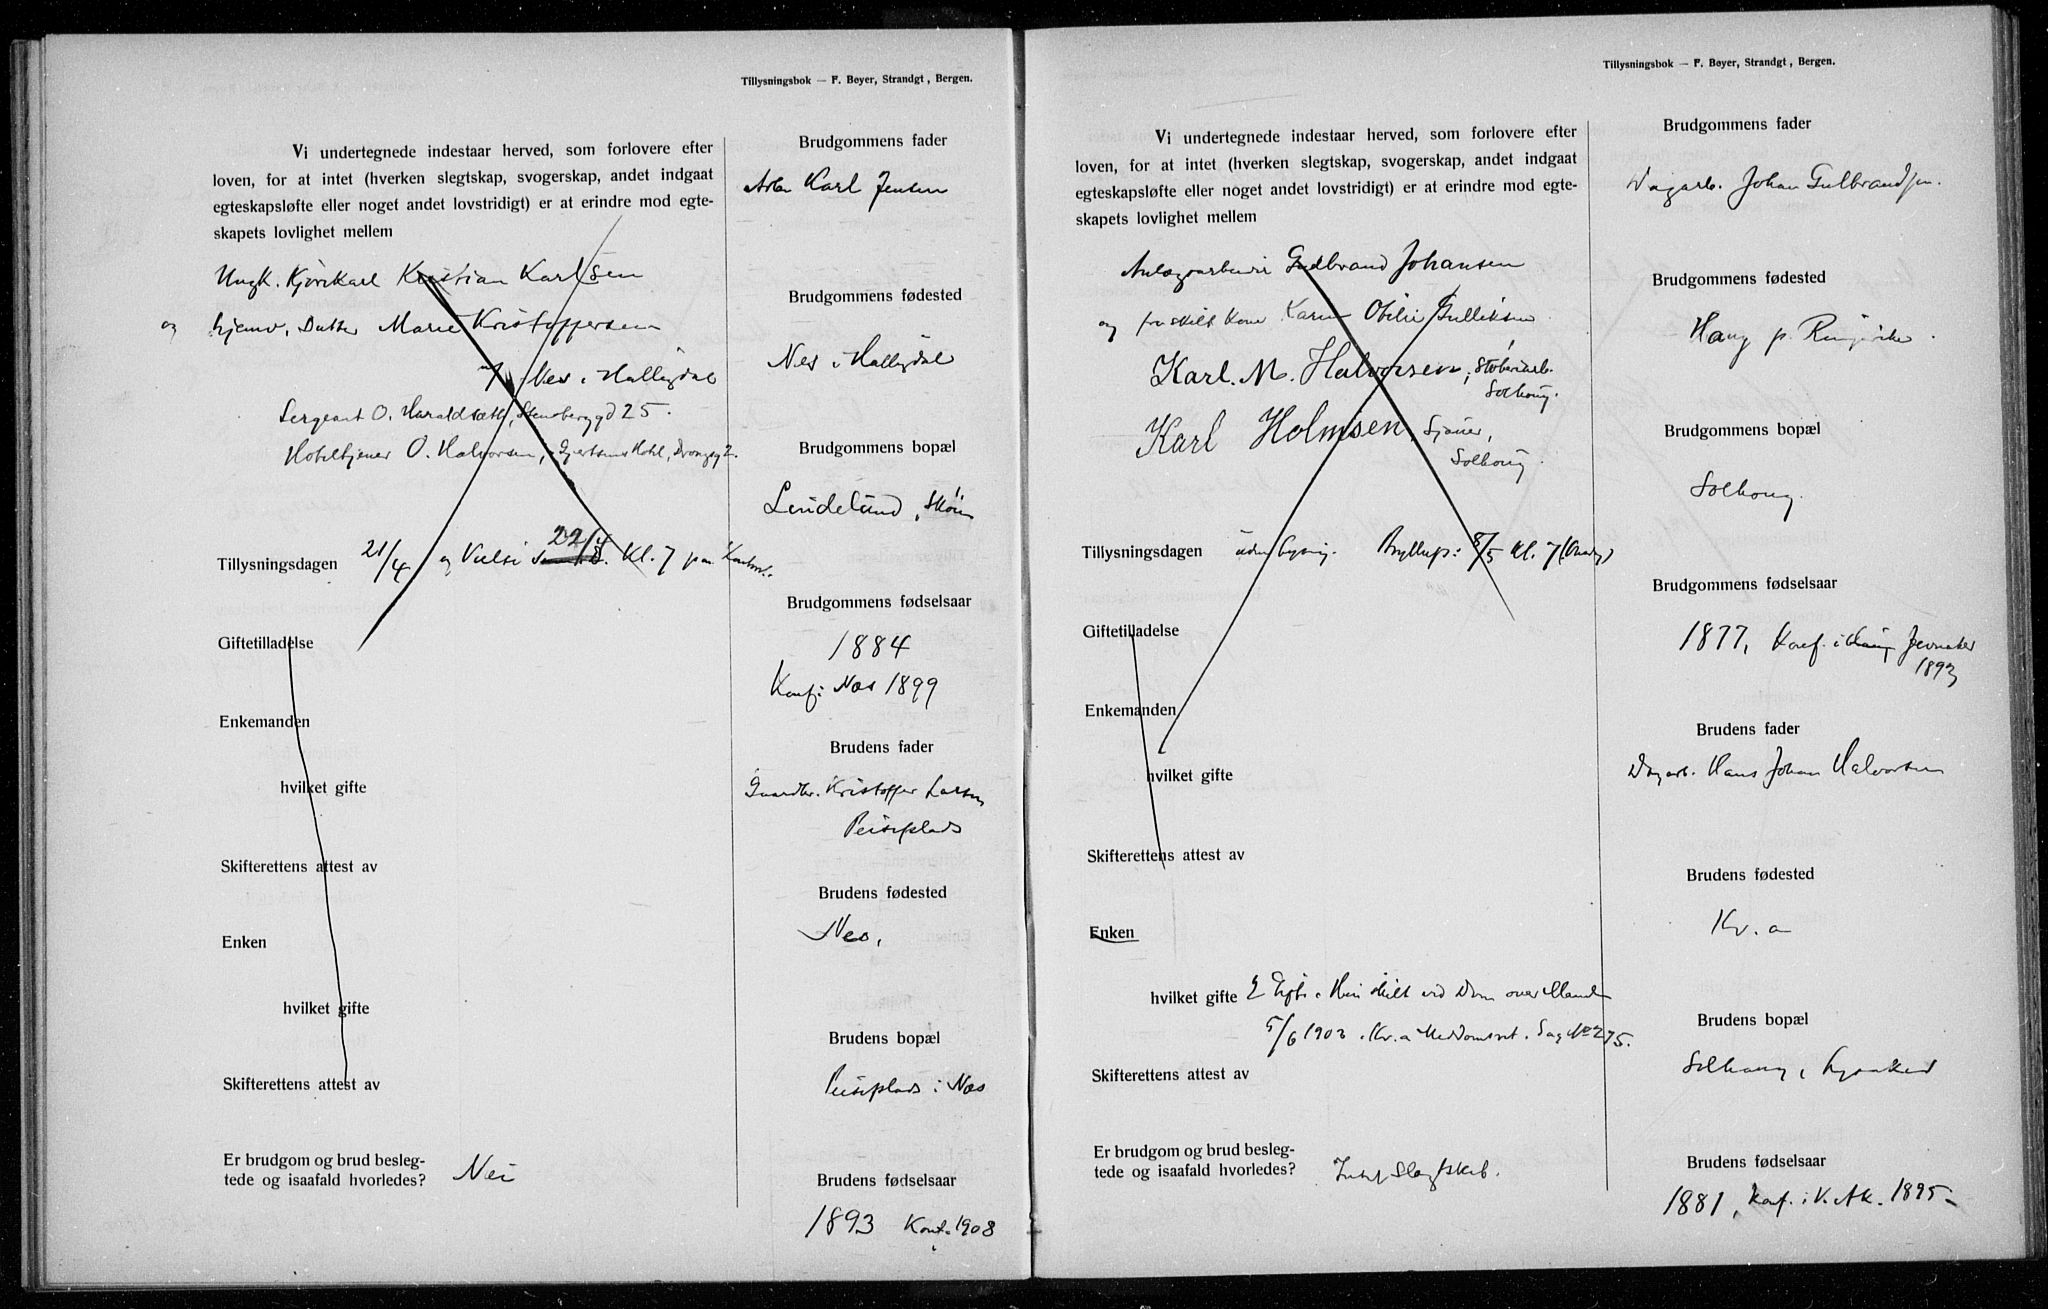 Tillysningsbok — F. Beyer, Strandgt, Bergen.
Vi undertegnede indestaar herved, som forlovere efter
loven, for at intet (hverken slegtskap, svogerskap, andet indgaat
egteskapsløfte eller noget andet lovstridigt) er at erindre mod egte-
skapets lovlighet mellem
Ungk. Kjørekarl Kristian Karlsen
og hjemv. Datter Marie Kristoffersen
Nes i Hallingdal
Sergeant O. Haraldsæth, Stensberggd 25.
Hoteltjener O. Halvorsen, Hotel,
Tillysningsdagen 21/4 og Vielse 22/4 Kl. 7 paa Kontoret.
Giftetilladelse
Enkemanden
hvilket gifte
Skifterettens attest av
Enken
hvilket gifte
Skifterettens attest av
Er brudgom og brud besleg-
tede og isaafald hvorledes? Nei
Brudgommens fader
Arb. Karl Jensen
Brudgommens fødested
Nes i Hallingdal
Brudgommens bopæl
Lindelund, Skøien
Brudgommens fødselsaar
1884
Konf. Nes 1899
Brudens fader
Gaardbr. Kristoffer Larsen
Peiseplads
Brudens fødested
Nes.
Brudens bopæl
Peiseplads i Nes
Brudens fødselsaar
1893 Konf. 1908
Tillysningsbok — F. Beyer, Strandgt, Bergen.
Vi undertegnede indestaar herved, som forlovere efter
loven, for at intet (hverken slegtskap, svogerskap, andet indgaat
egteskapsløfte eller noget andet lovstridigt) er at erindre mod egte-
skapets lovlighet mellem
Anlægsarbeider Gudbrand Johansen
og fraskilt Kone Karen Otilie Gulliksen
Karl. M. Halvorsen, Støberiarb.
Solhaug.
Karl Holmsen, Sjauer,
Solhaug.
Tillysningsdagen uden lysning. Bryllup: 8/5 Kl. 7 (Onsdag)
Giftetilladelse
Enkemanden
hvilket gifte
Skifterettens attest av
Enken
hvilket gifte 2 Egts. Hun skilt ved Dom over Manden
5/6 1903 i Kr.a Meddomsret. Sag No 275.
Skifterettens attest av
Er brudgom og brud besleg-
tede og isaafald hvorledes? Intet Slegtskab.
Brudgommens fader
Dagarb. Johan Gulbrandsen.
Brudgommens fødested
Haug p. Ringerike.
Brudgommens bopæl
Solhaug.
Brudgommens fødselsaar
1877, Konf. i Jevnaker
1893
Brudens fader
Dagarb. Hans Johan Halvorsen
Brudens fødested
Kr.a
Brudens bopæl
Solhaug, Lysaker
Brudens fødselsaar
1881, Konf. i V. Ak. 1895